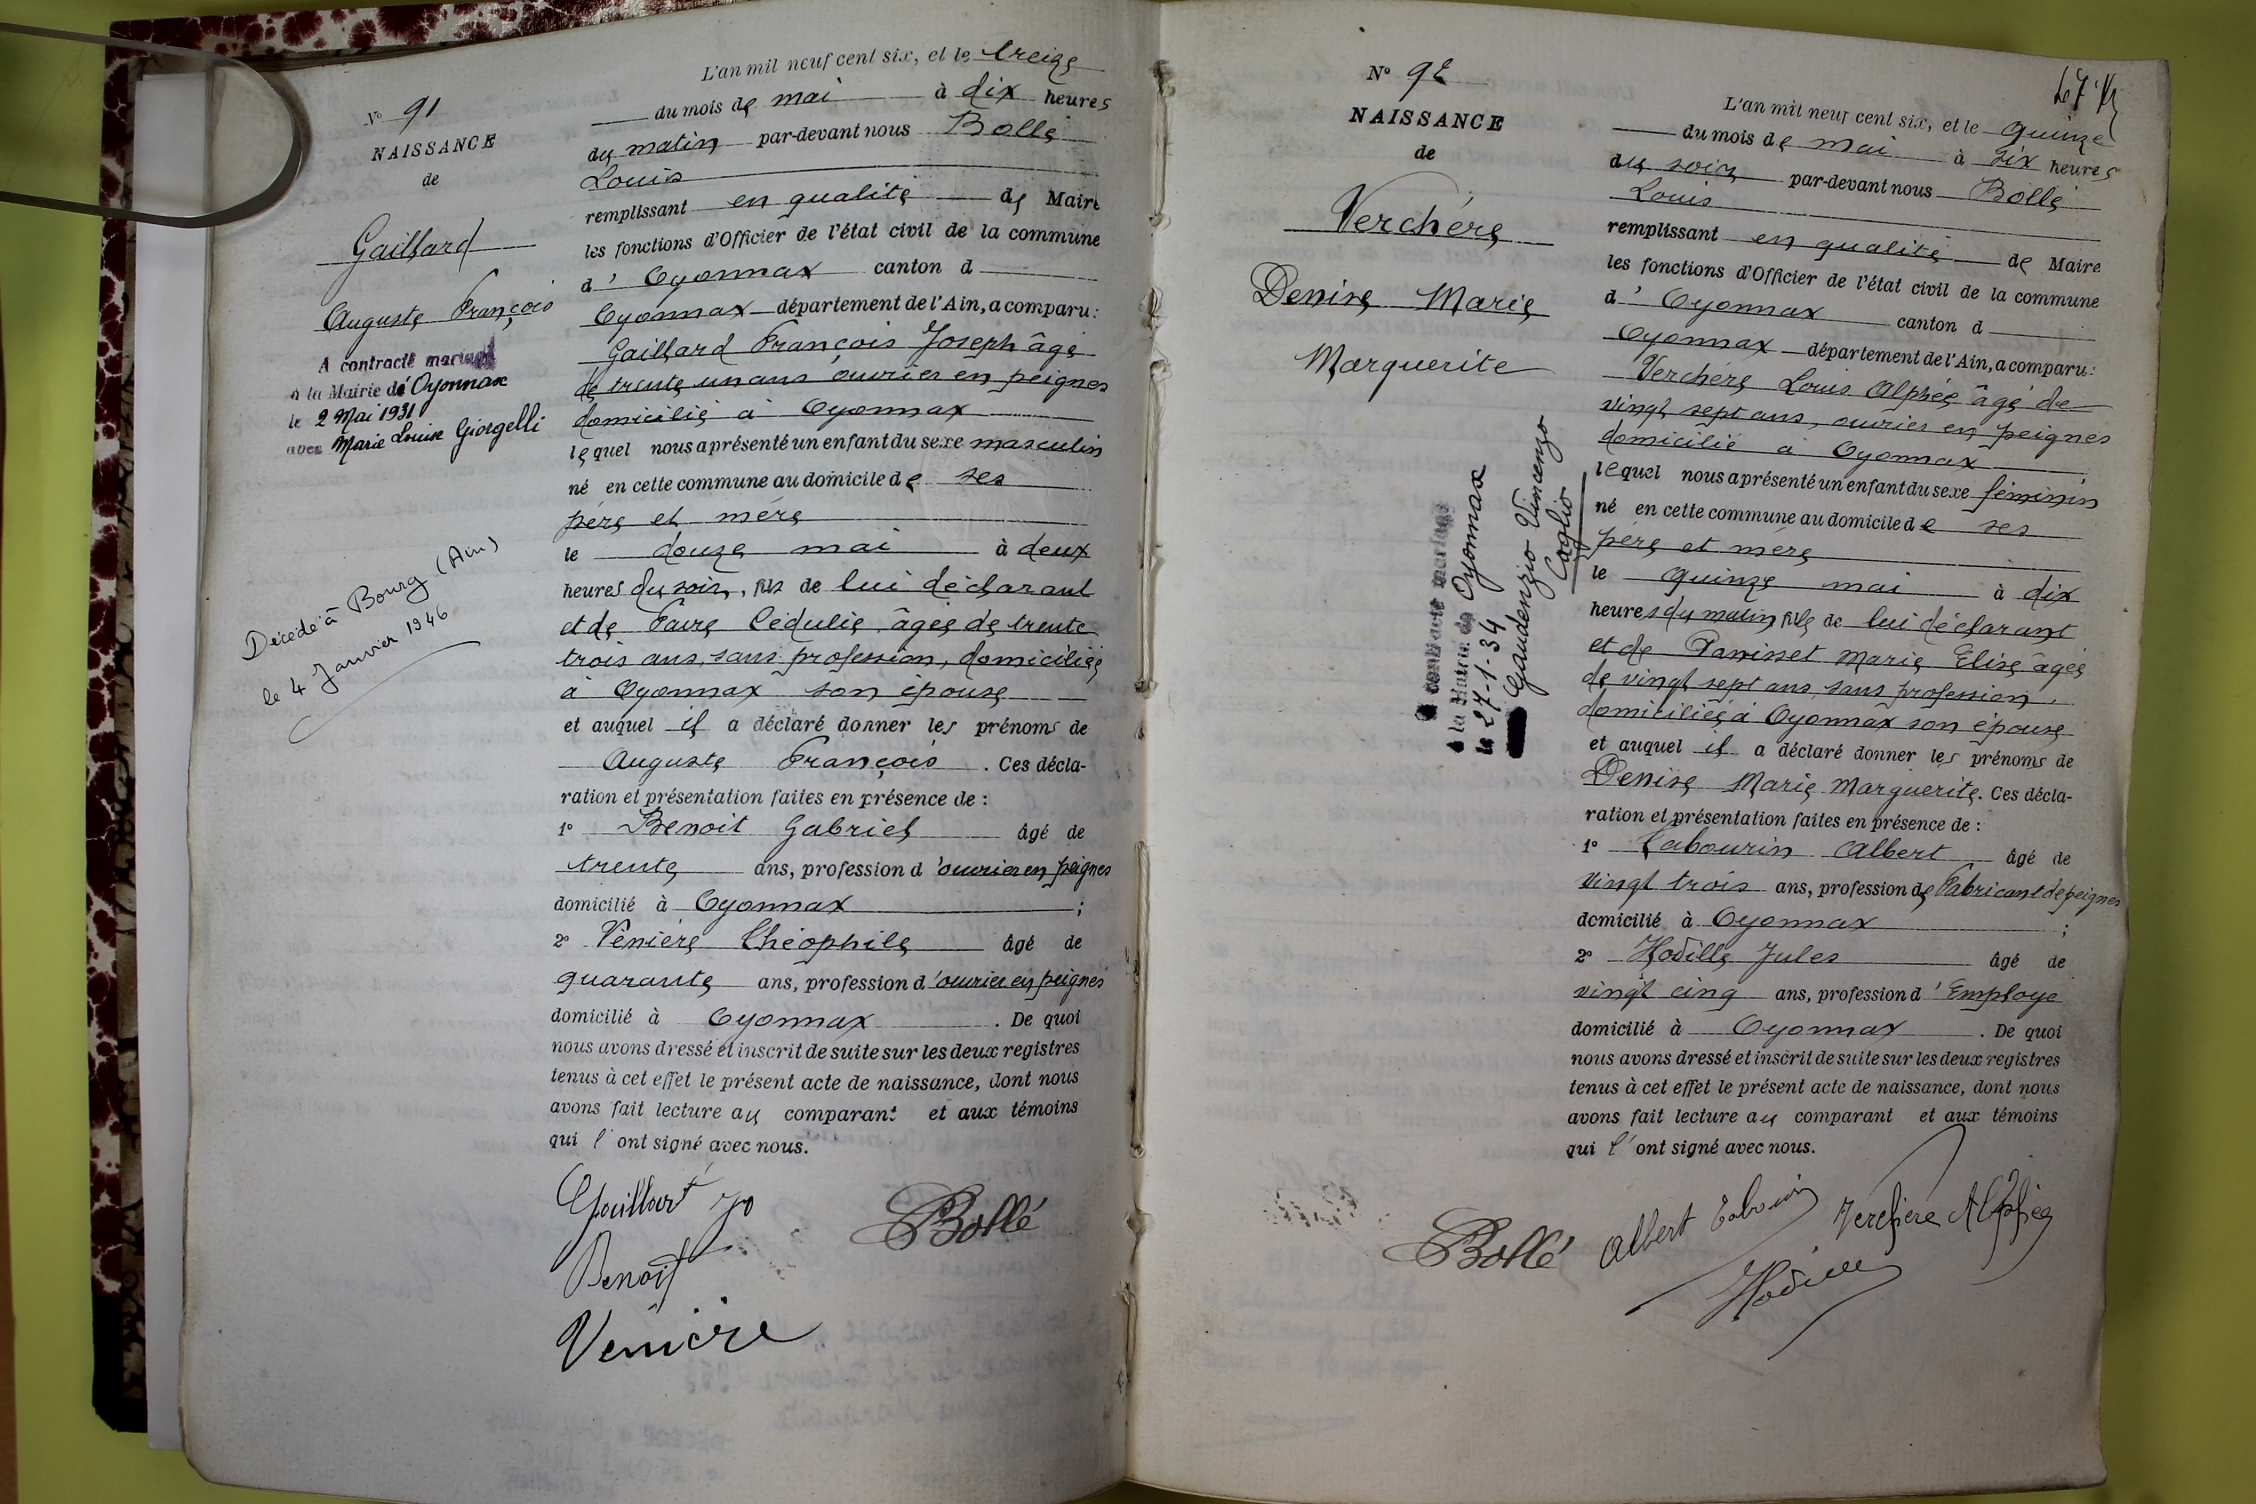 N° 91
NAISSANCE
de
Gaillard
Auguste François
A contracté mariage
à la Mairie d'Oyonnax
le 2 Mai 1931
avec Marie Louise Giorgelli
Décédé à Bourg (Ain)
le 4 Janvier 1946
L'an mil neuf cent six, et le treize
du mois de mai à dix heures
du matin par-devant nous Bollé
Louis
remplissant en qualité de Maire
les fonctions d'Officier de l'état civil de la commune
d' Oyonnax canton d
Oyonnax département de l'Ain, a comparu:
Gaillard François Joseph âgé
de trente un ans ouvrier en peignes
domicilié à Oyonnax
lequel nous a présenté un enfant du sexe masculin
né en cette commune au domicile de ses
père et mère
le douze mai à deux
heures du soir, fils de lui déclarant
et de Favre Cédulie âgée de trente
trois ans, sans profession, domiciliée
à Oyonnax son épouse
et auquel il a déclaré donner les prénoms de
Auguste François. Ces décla-
ration et présentation faites en présence de :
1° Benoit Gabriel âgé de
trente ans, profession d'ouvrier en peignes
domicilié à Oyonnax ;
2° Venière Théophile âgé de
quarante ans, profession d'ouvrier en peignes
domicilié à Oyonnax. De quoi
nous avons dressé et inscrit de suite sur les deux registres
tenus à cet effet le présent acte de naissance, dont nous
avons fait lecture au comparant et aux témoins
qui l'ont signé avec nous.
Bollé
Benoit
Venière
N° 92
NAISSANCE
de
Verchère
Denise Marie
Marguerite
A contracté mariage
à la Mairie de Oyonnax
le 27-1-34
Gaudenzio Vincenzo
Caglio
L'an mil neuf cent six, et le quinze
du mois de mai à six heures
du soir par-devant nous Bollé
Louis
remplissant en qualité de Maire
les fonctions d'Officier de l'état civil de la commune
d' Oyonnax canton d
Oyonnax département de l'Ain, a comparu:
Verchère Louis Alphée âgé de
vingt sept ans, ouvrier en peignes
domicilié à Oyonnax
lequel nous a présenté un enfant du sexe féminin
né en cette commune au domicile de ses
père et mère
le quinze mai à dix
heures du matin fille de lui déclarant
et de Panisset Marie Elise âgée
de vingt sept ans sans profession,
domiciliée à Oyonnax son épouse
et auquel il a déclaré donner les prénoms de
Denise Marie Marguerite. Ces décla-
ration et présentation faites en présence de :
1° Labourin Albert âgé de
vingt trois ans, profession de Fabricant de peignes
domicilié à Oyonnax ;
2° Hodille Jules âgé de
vingt cinq ans, profession d'Employé
domicilié à Oyonnax. De quoi
nous avons dressé et inscrit de suite sur les deux registres
tenus à cet effet le présent acte de naissance, dont nous
avons fait lecture au comparant et aux témoins
qui l'ont signé avec nous.
Bollé Albert Verchère Alphée